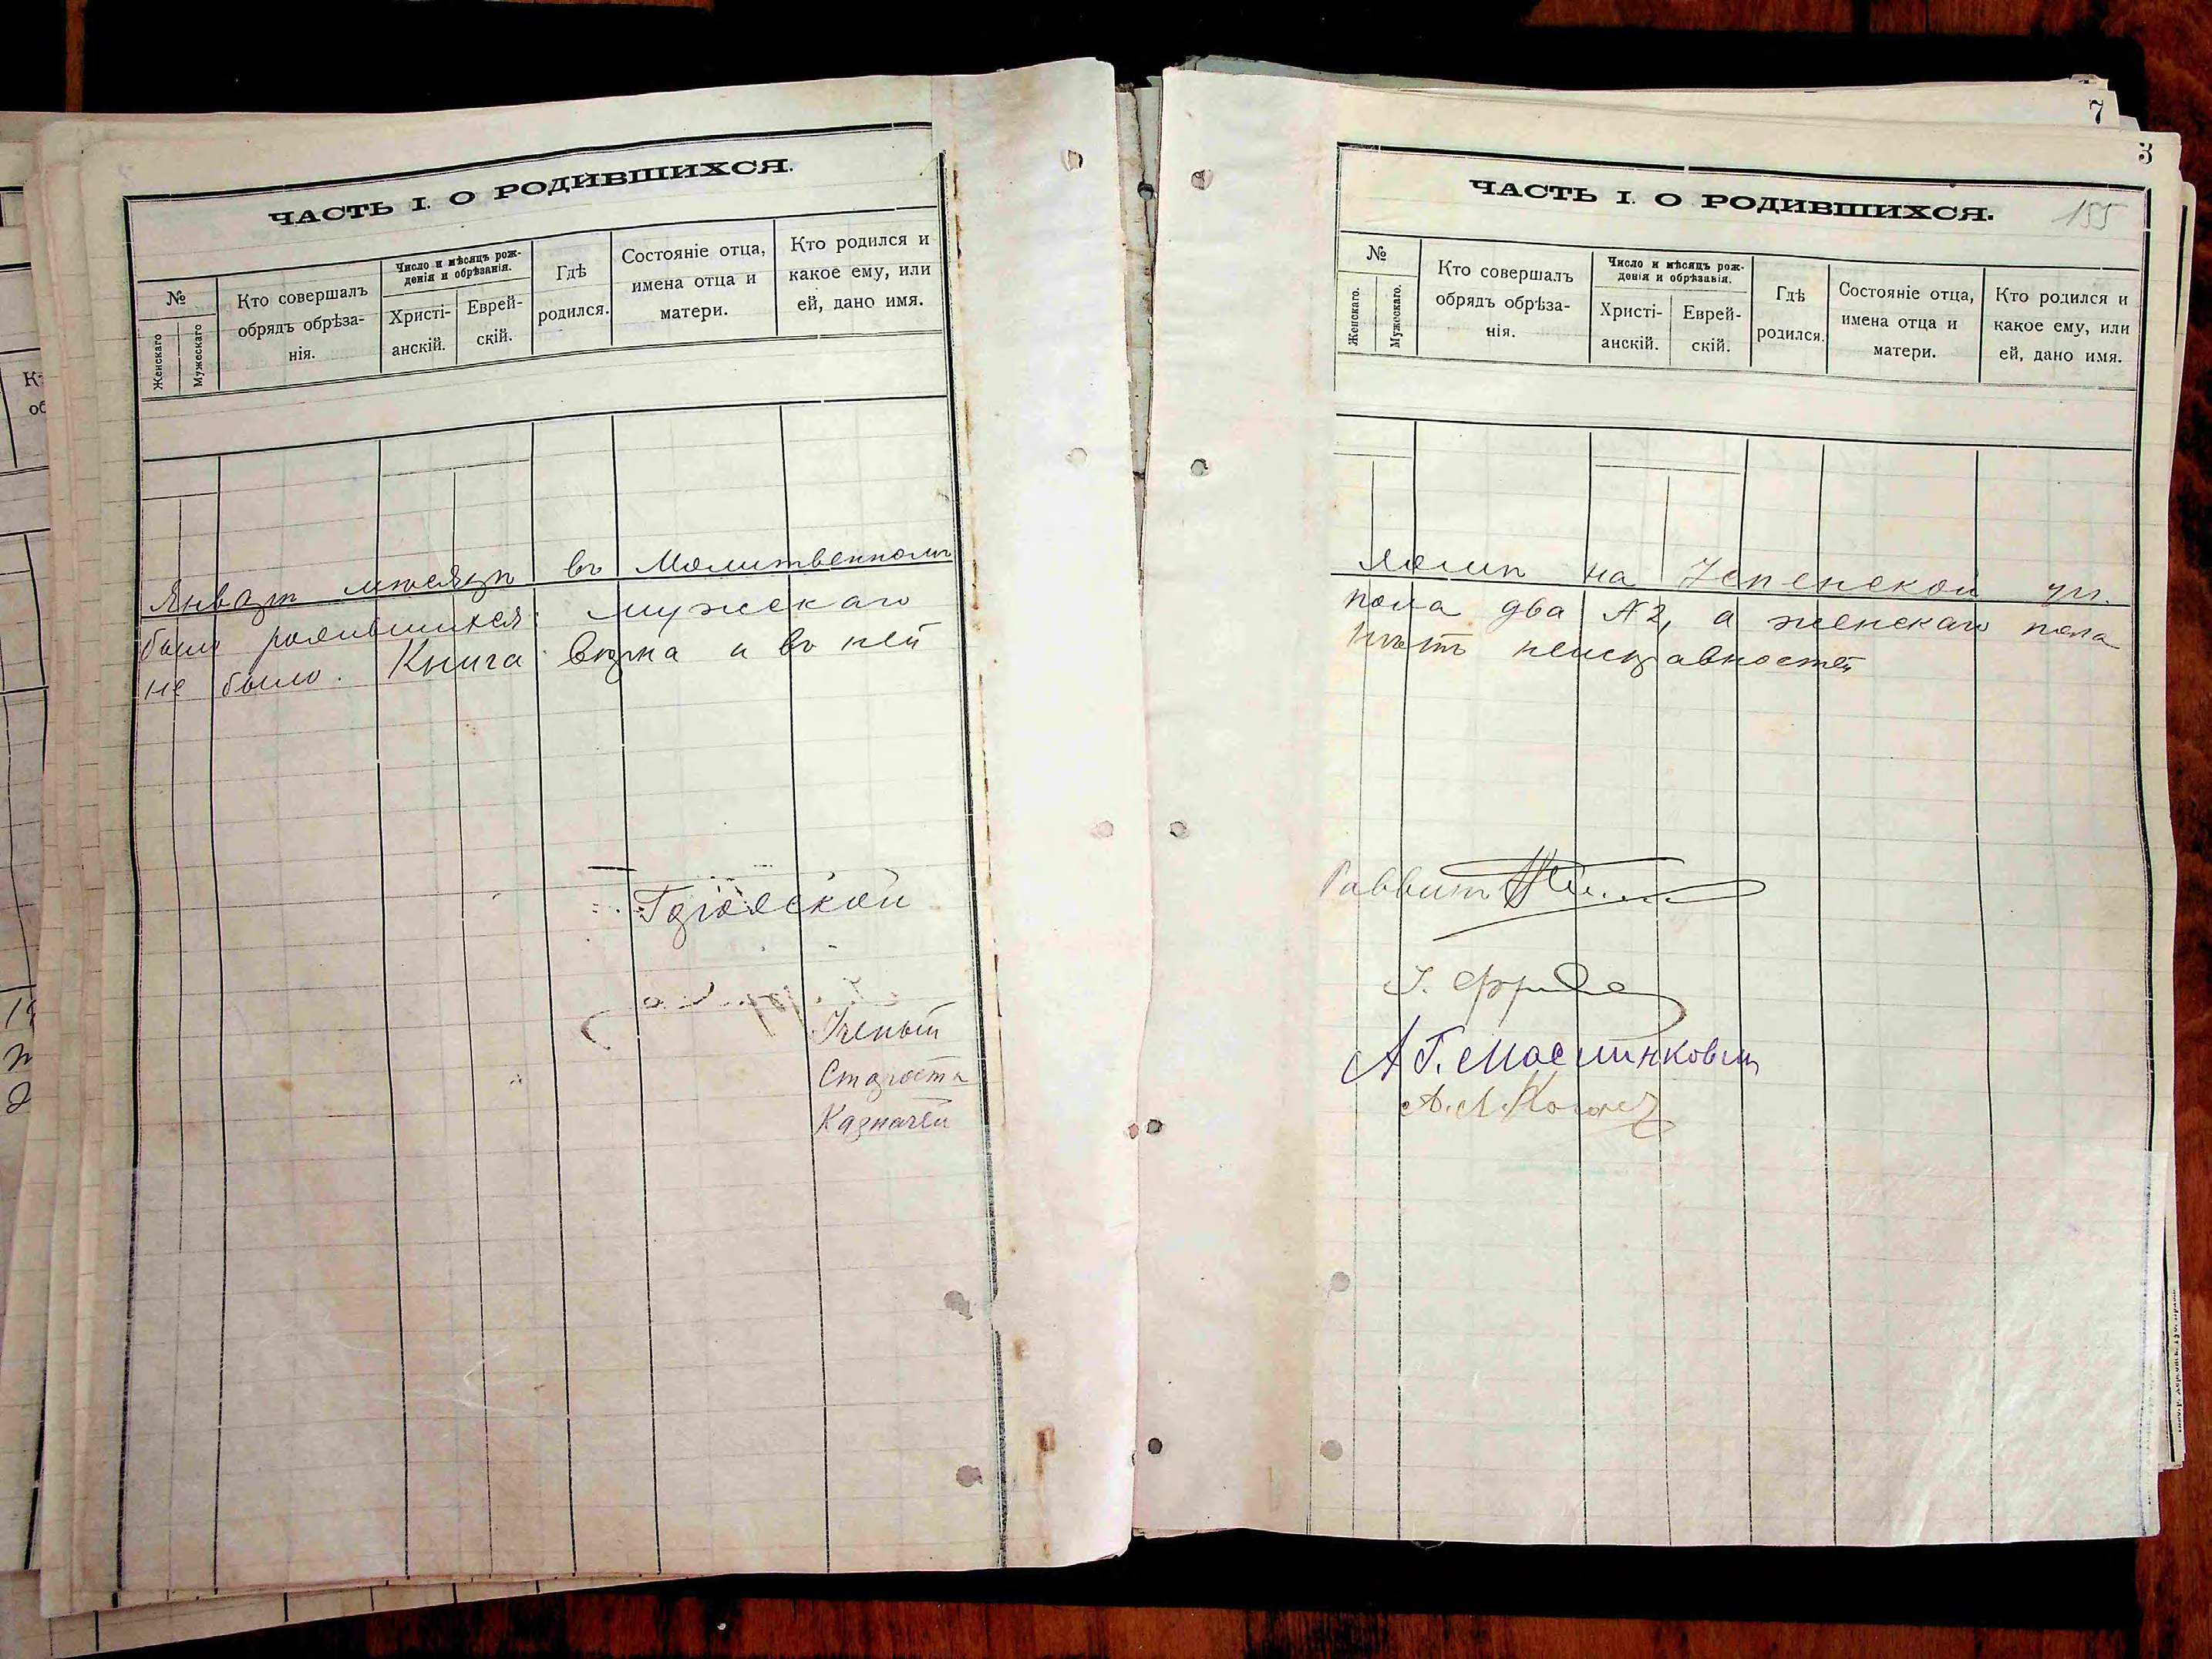 ЧАСТЬ I. О РОДИВШИХСЯ.
№
Женскаго
Мужескаго
Кто совершалъ
обрядъ обрѣза-
нія.
Число и мѣсяцъ рож-
денія и обрѣзанія.
Христі-
анскій.
Еврей-
скій.
Гдѣ
родился.
Состояніе отца,
имена отца и
матери.
Кто родился и
какое ему, или
ей, дано имя.
Январь мѣсяцъ въ Молитвенномъ
было родившихся: мужескаго
не было. Книга вѣрна и въ ней
Городской
Ученый
Староста
Казначей
7
3
ЧАСТЬ I. О РОДИВШИХСЯ.
155
№
Женскаго.
Мужескаго.
Кто совершалъ
обрядъ обрѣза-
нія.
Число и мѣсяцъ рож-
денія и обрѣзанія.
Христі-
анскій.
Еврей-
скій.
Гдѣ
родился.
Состояніе отца,
имена отца и
матери.
Кто родился и
какое ему, или
ей, дано имя.
домѣ на Успенской ул.
пола два № 2, а женскаго пола
нѣтъ неисправностей
Раввинъ
А Г.